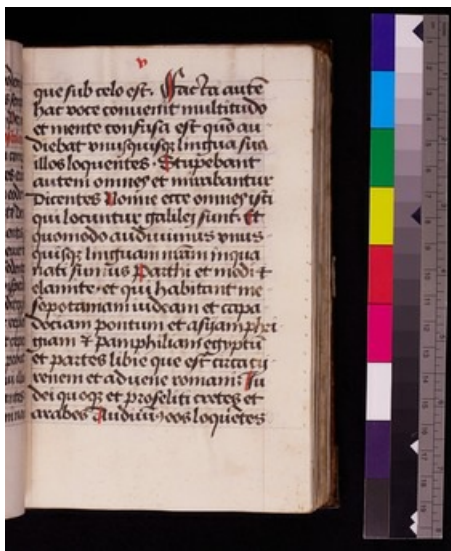 v
que sub celo est. Facta autē
hac voce convenit multitudo
et mente confusa est quō au
diebat vnusquisq lingua sua
illos loquentes. Stupebant
autem omnes et mirabantur
dicentes Nonne ecce omnes isti
qui locuntur galilei sunt. Et
quomodo audiuimus vnus
quisq linguam nrām in qua
nati sumus Parthi et medi &
elamite. et qui habitant me
sopotamiam iudeam et capa
dociam pontum et asyam phri
giam & pamphiliam egyptū
et partes libie que est circa cy
renem et aduene romani. Iu
dei quoq et proseliti cretes et
arabes Audiuimꝰ eos loquētes